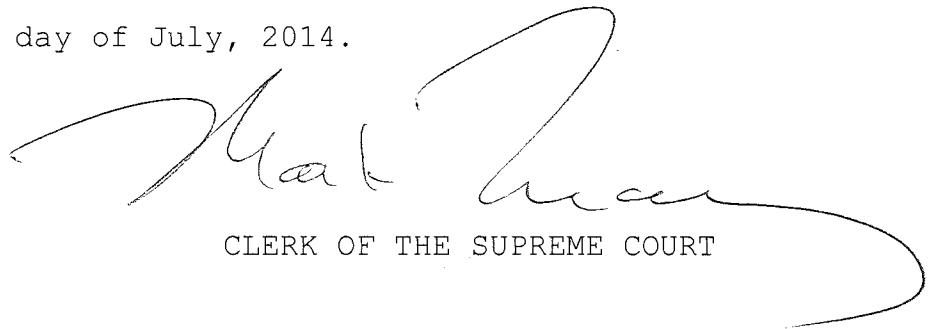 day of July, 2014.
CLERK OF THE SUPREME COURT